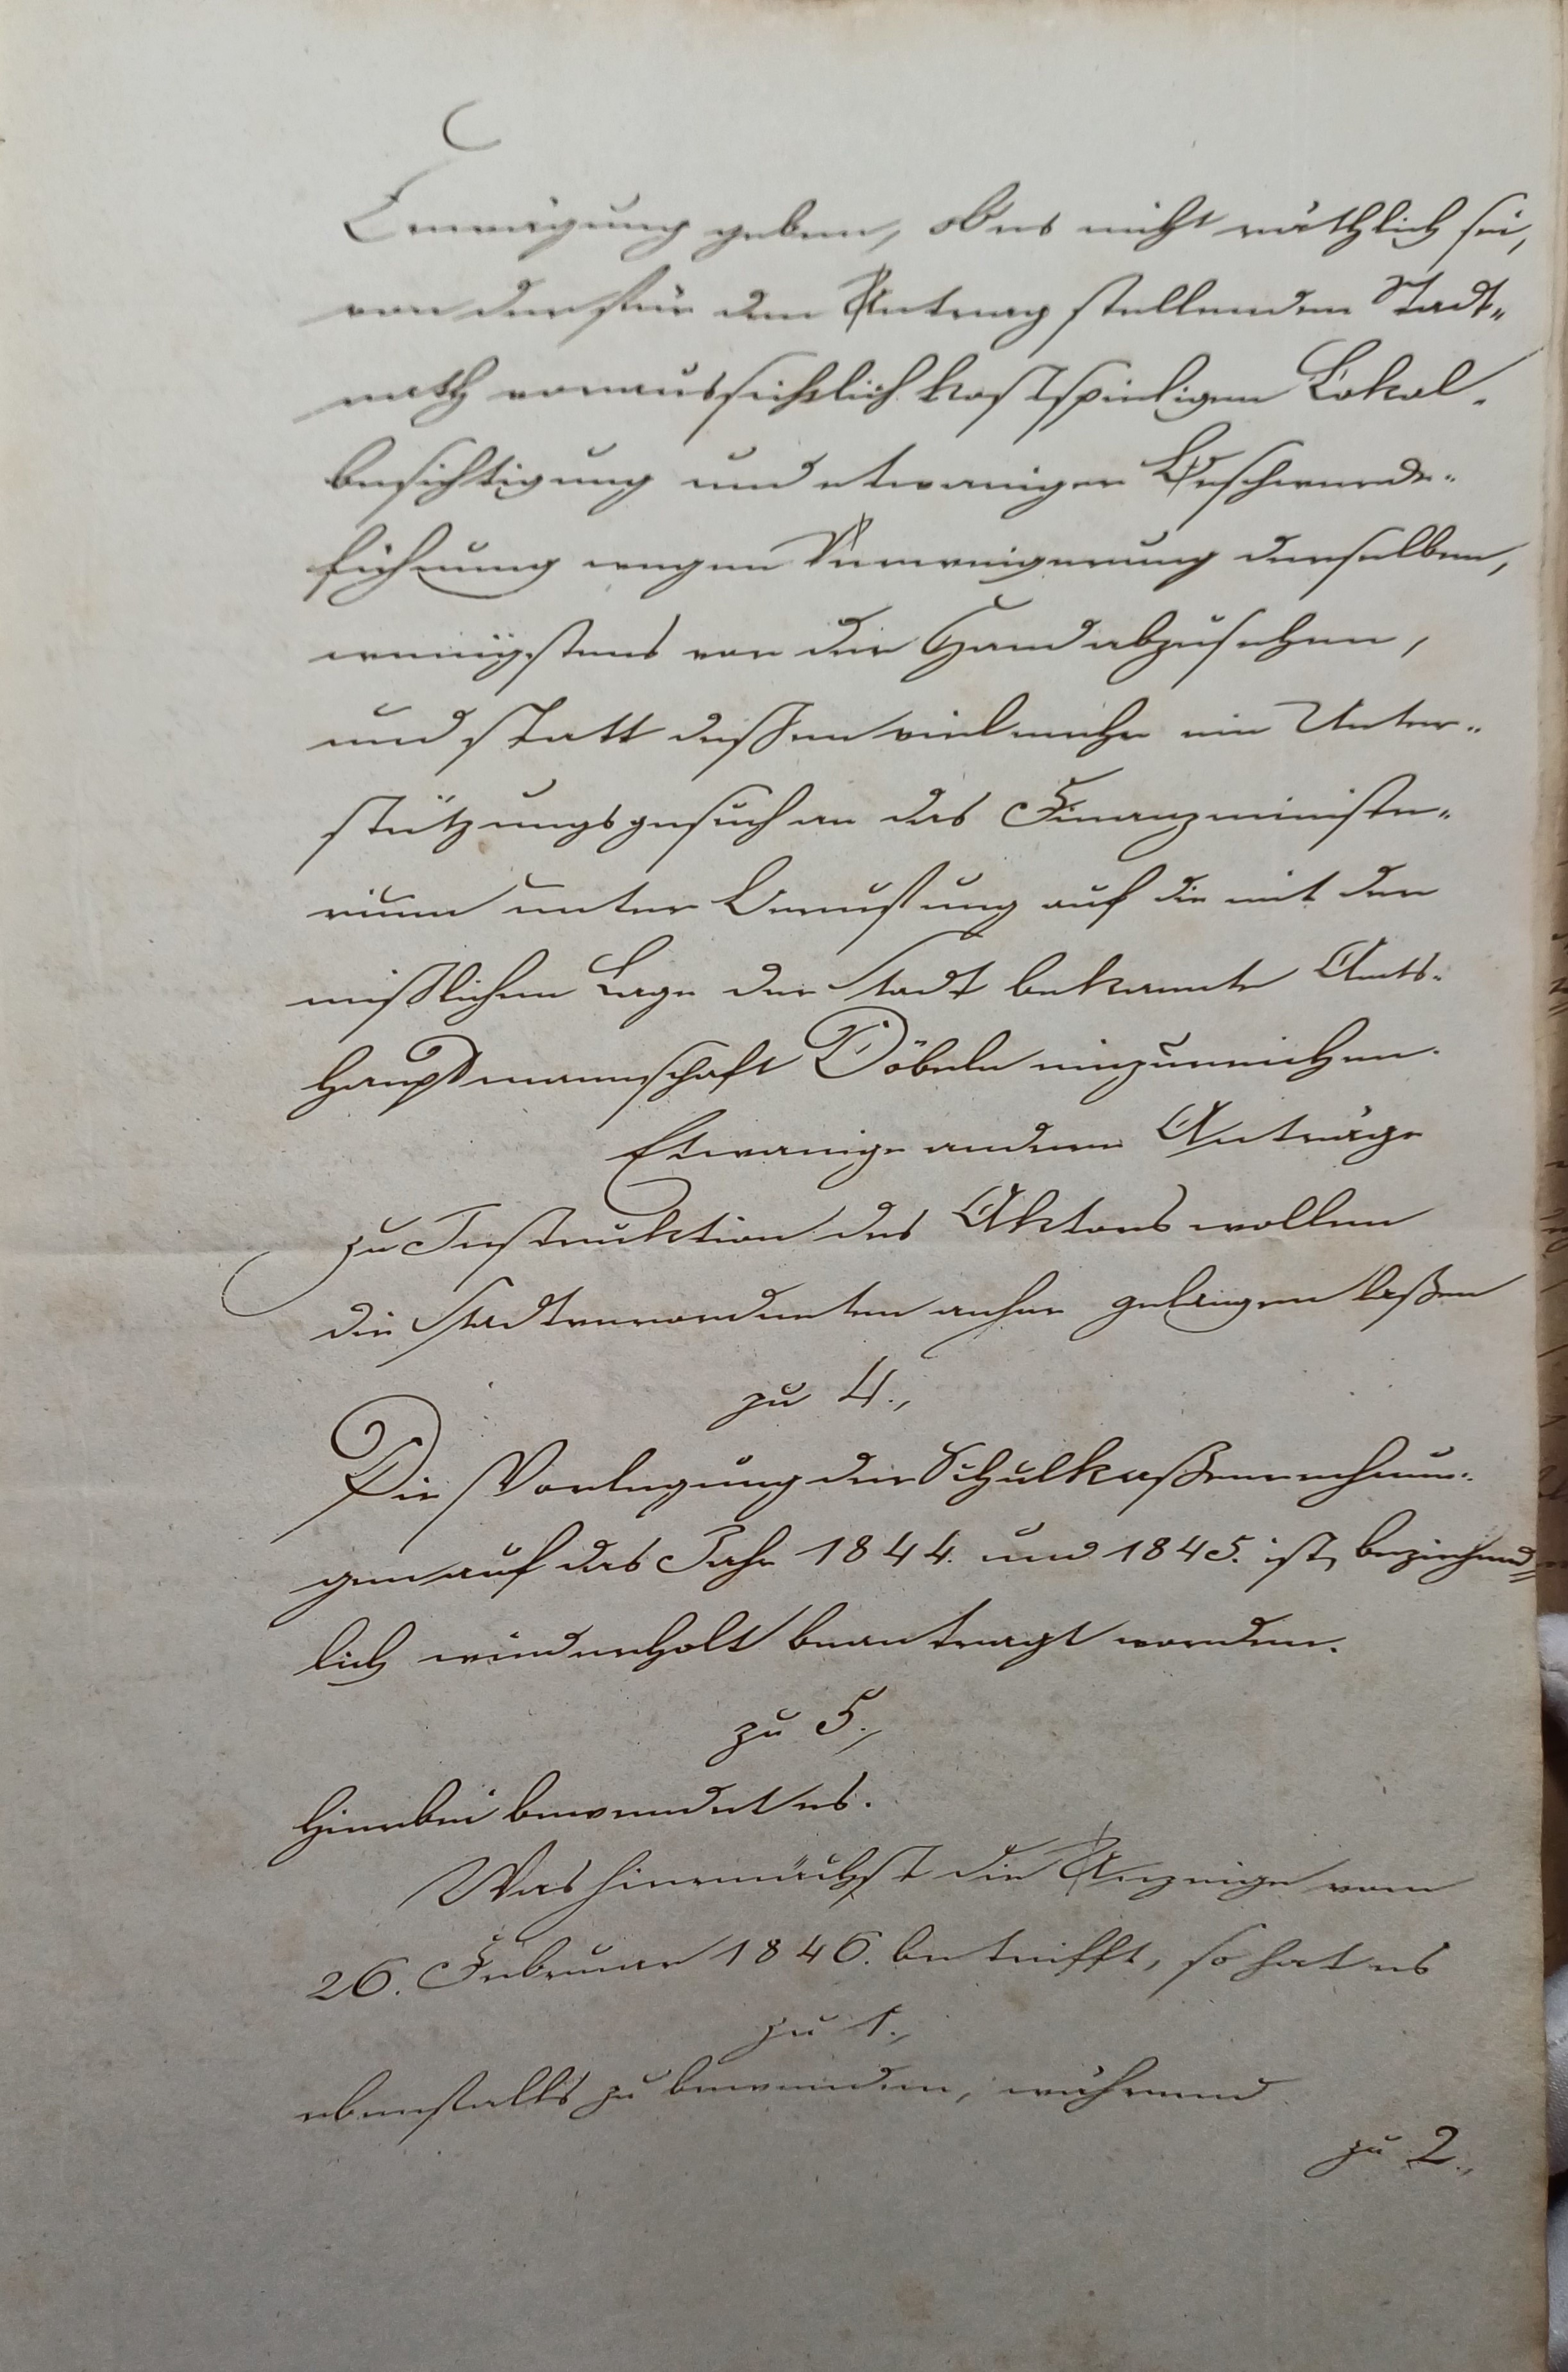 Erwägung geben, ob es nicht räthlich sei,
von der für den Antrag stellenden Stadt-
rath voraussichtlich kostspieligen Lokal-
besichtigung und etwaiger Beschwerde-
führung wegen Verweigerung derselben,
wenigstens vor der Hand abzusehen,
und statt dessen vielmehr ein Unter-
stützungsgesuch an das Finanzministe-
rium unter Berufung auf die mit der
mißlichen Lage der Stadt bekannte Amts-
hauptmannschaft Döbeln einzureichen.
Etwanige andere Anträge
zu Instruktion des Aktors wollen
die Stadtverordneten anher gelangen laßen
zu 4.,
Die Vorlegung der Schulkaßenrechnun-
gen auf das Jahr 1844. und 1845. ist, beziehend-
lich wiederholt beantragt worden.
zu 5.,
Hierbei bewendet es.
Was hiernächst die Anzeige vom
26. Februar 1846. betrifft, so hat es
zu 1.,
ebenfalls zu bewenden, während
zu 2.,